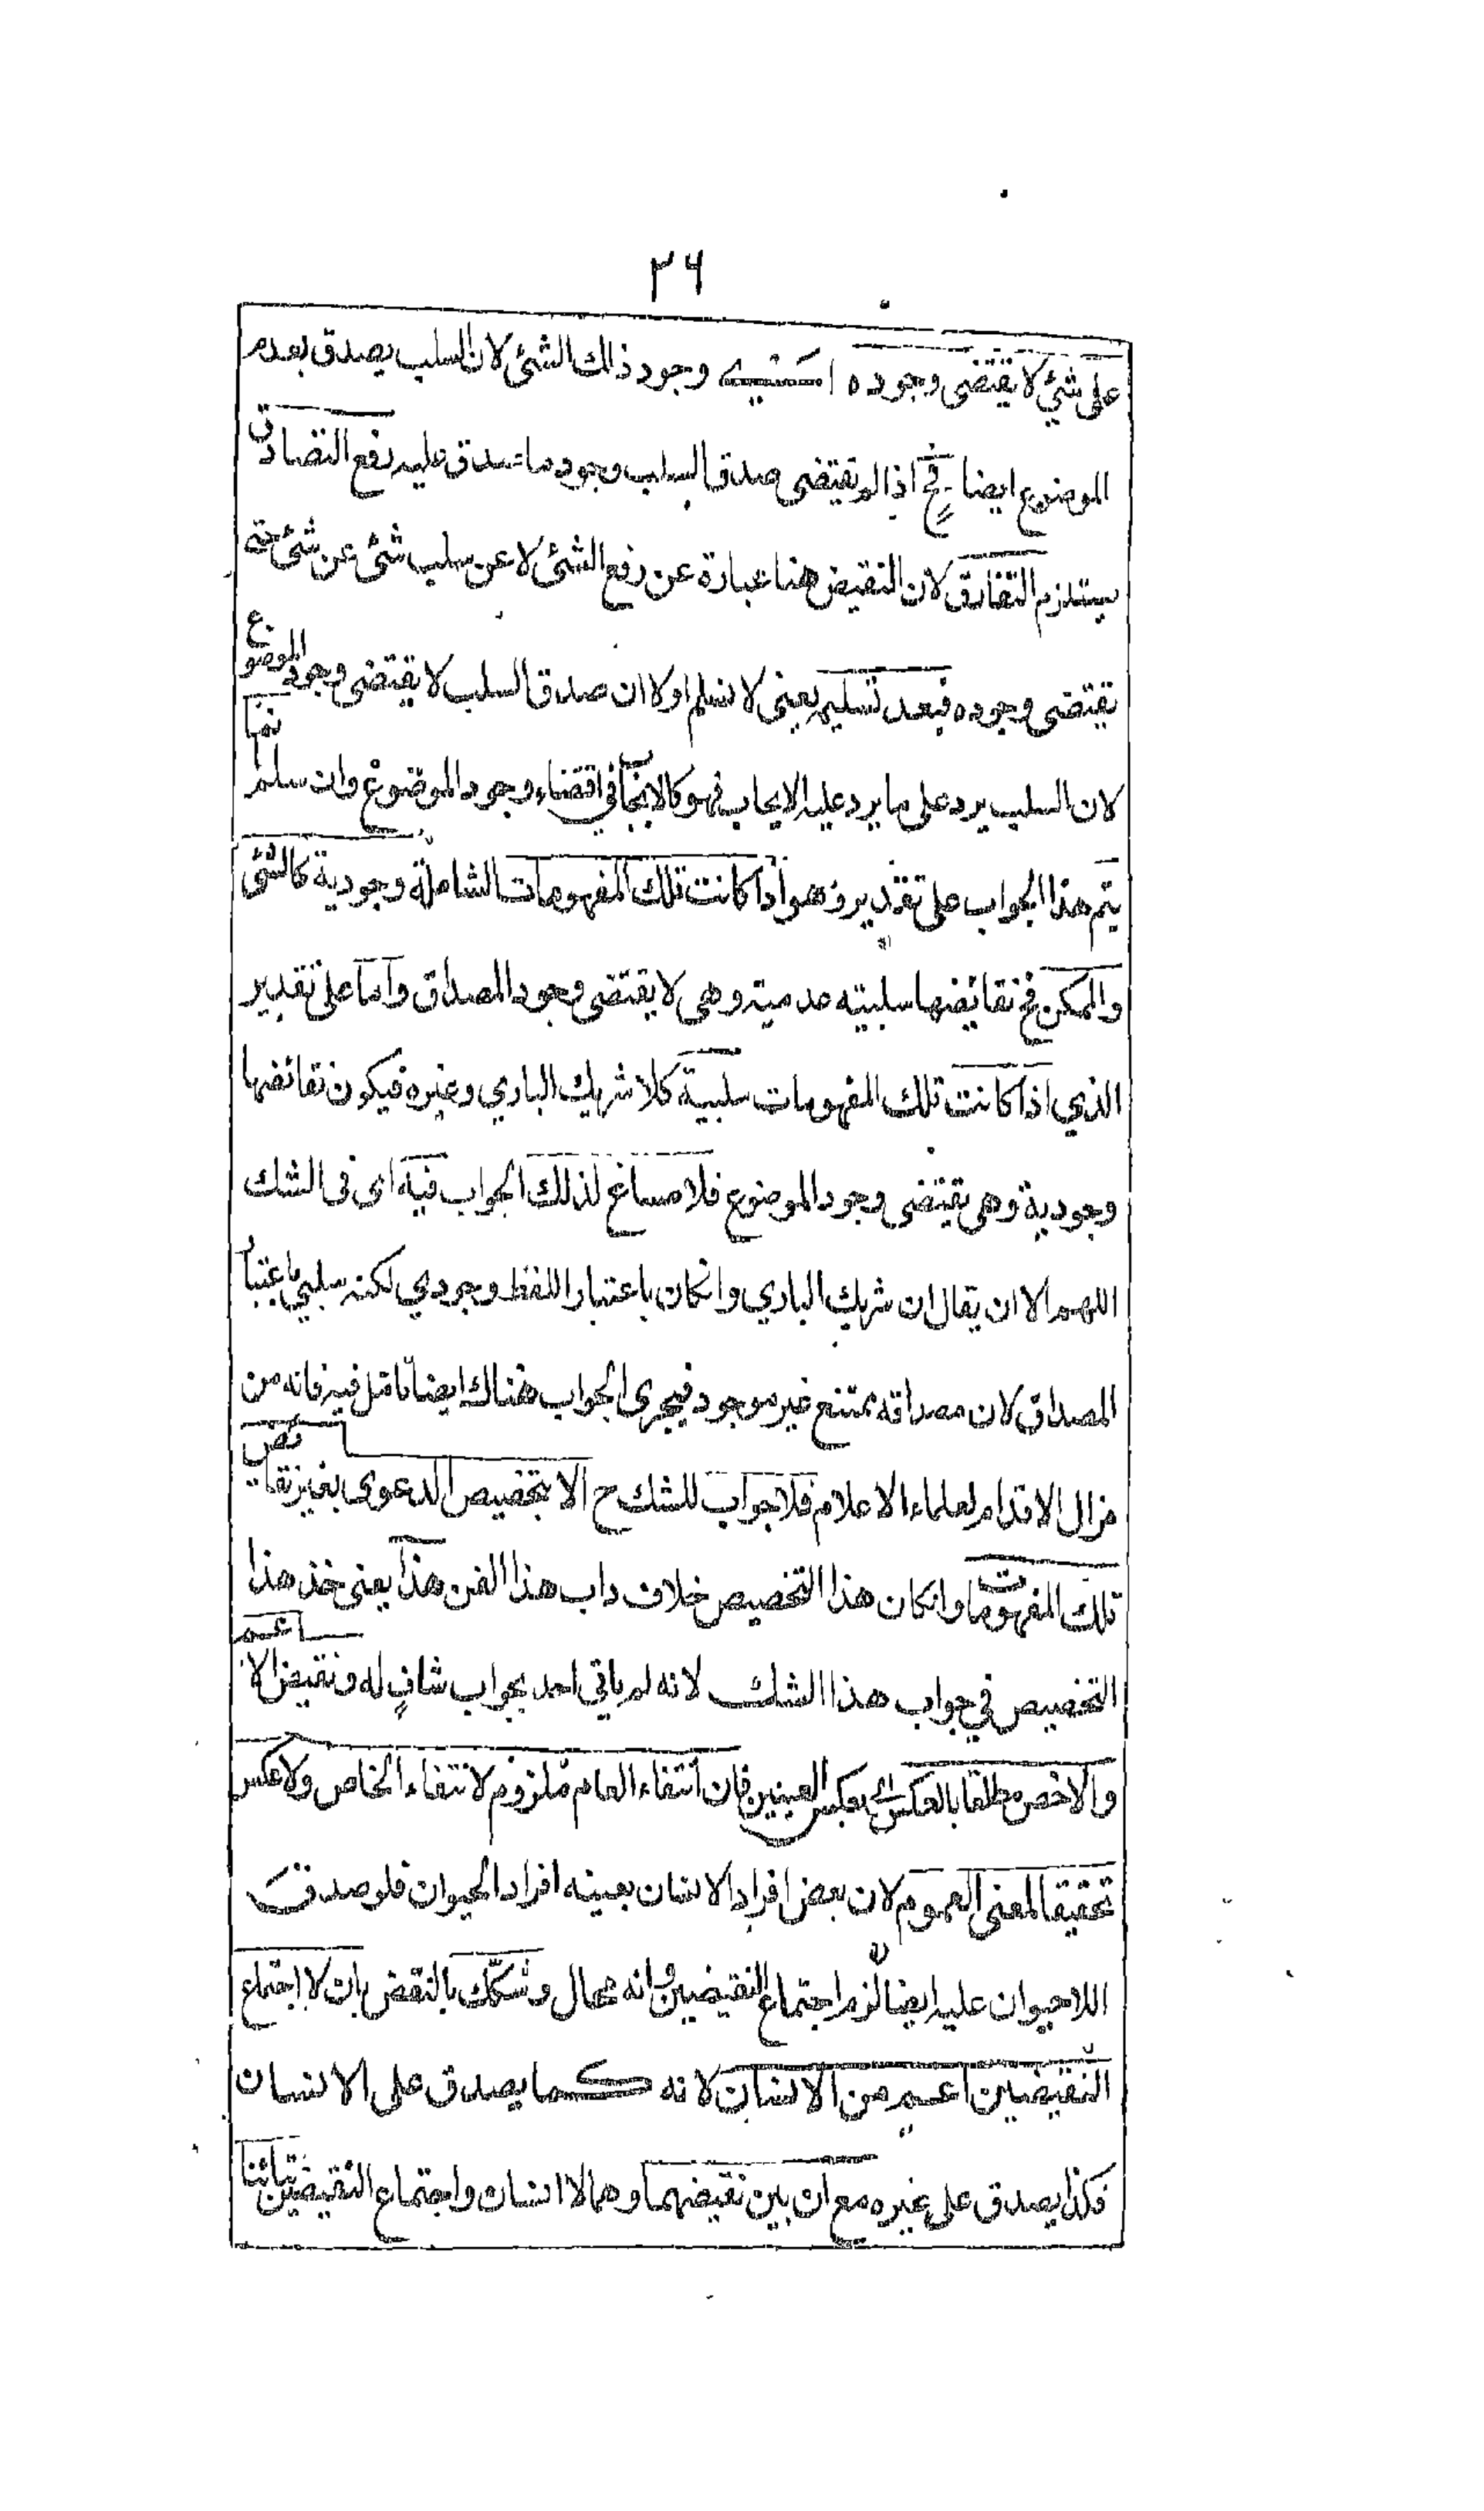 ٢٦
على شئ لا يقتضى وجوده اى وجود ذالك الشئ لان السلب يصدق بعدم
الموضوع ايضا فح اذا لم تقتضى صدق السلب وجود ما صدق عليه رفع التصادق
يستلزم التفارق لان النقيض هنا عبارة عن رفع الشئ لا عن سلب شئ عن شئ حتى
تقتضى وجوده فبعد تسليمه يعنى لا نسلم اولا ان صدق السلب لا يقتضى وجود الموضوع
لان السلب يرد على ما يرد عليه الايجاب فهو كالايجاب فى اقتضاء وجود الموضوع وان سلم انما
يتم هذا الجواب على تقدير وهو اذا كانت تلك المفهومات الشاملة وجودية كالشئ
والممكن فح نقائضها سلبيته عدميته وهى لا يقتضى وجود المصداق واما على تقدير
الذي اذا كانت تلك المفهومات سلبية كلا شريك الباري وغيره فيكون نقائضها
وجودية وهى يقتضى وجود الموضوع فلا مساغ لذلك الجواب فيه اى فى الشك
اللهم الا ان يقال ان شريك الباري وانكان باعتبار اللفظ وجودي لكنه سلبي باعتبار
المصداق لان مصداقه ممتنع غير موجود فيجرى الجواب هناك ايضا تامل فيه فانه من
مزال الاقدام لعلماء الاعلام فلا جواب للشك ح الا بتخصيص الدعوى بغير نقايض
تلك المفهومات وانكان هذا التخصيص خلاف داب هذا الفن هذا يعنى خذ هذا
التخصيص في جواب هذا الشك لانه لم ياتى احد بجواب شافٍ له ونقيض الاعم
والاخص مطلقا بالعكس اى بعكس العينين فان انتفاء العام ملزوم لانتفاء الخاص ولا عكس
تحقيقا لمعنى العموم لان بعض افراد الانسان بعينه افراد الحيوان فلو صدق
اللاحيوان عليه ايضا لزم اجتماع النقيضين وانه محال وشكك بالنقض بان لا اجتماع
النقيضين اعم من الانسان لانه كما يصدق على الانسان
فكذا يصدق على غيره مع ان بين نقيضهما وهما لا انسان واجتماع النقيضين تباينا